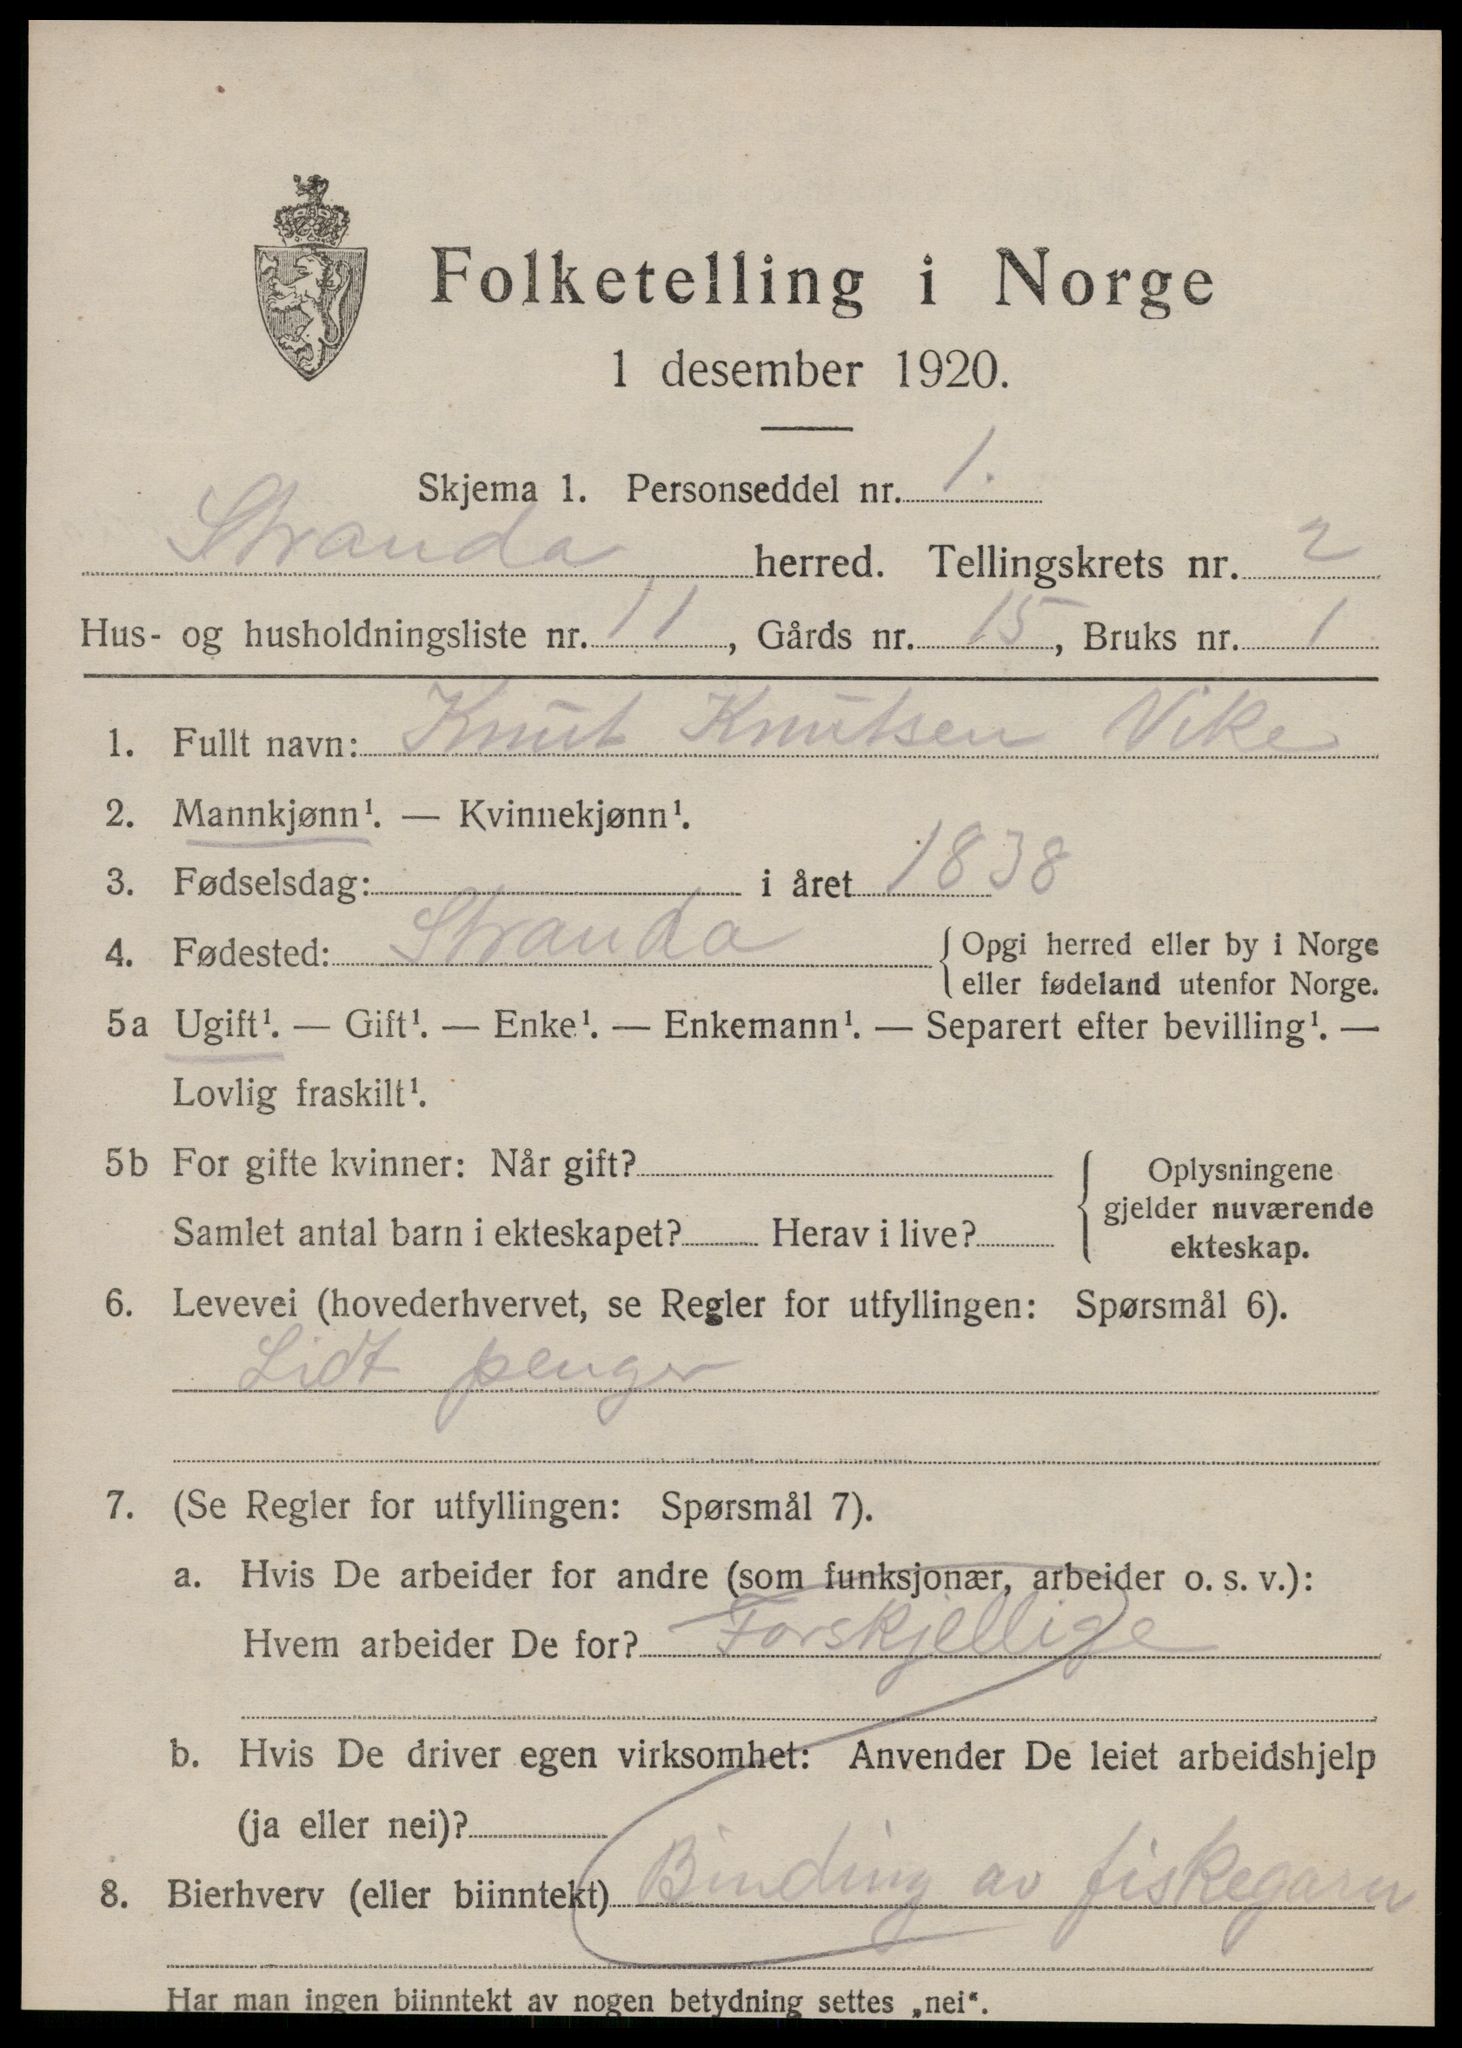 Folketelling i Norge
1 desember 1920.
Skjema 1. Personseddel nr. 1.
Stranda herred. Tellingskrets nr. 2
Hus- og husholdningsliste nr. 11, Gårds nr. 15, Bruks nr. 1
1. Fullt navn: Knut Knutsen Vike
2. Mannkjønn¹. — Kvinnekjønn¹.
3. Fødselsdag: i året 1838
4. Fødested: Stranda { Opgi herred eller by i Norge
eller fødeland utenfor Norge.
5a Ugift¹. — Gift¹. — Enke¹. — Enkemann¹. — Separert efter bevilling¹. —
Lovlig fraskilt¹.
5b For gifte kvinner: Når gift? { Oplysningene
gjelder nuværende
Samlet antal barn i ekteskapet? Herav i live?
ekteskap.
6. Levevei (hovederhvervet, se Regler for utfyllingen: Spørsmål 6).
Lidt penger
7. (Se Regler for utfyllingen: Spørsmål 7).
a. Hvis De arbeider for andre (som funksjonær, arbeider o. s. v.):
Hvem arbeider De for? Forskjellige
b. Hvis De driver egen virksomhet: Anvender De leiet arbeidshjelp
(ja eller nei)?
8. Bierhverv (eller biinntekt) Binding av fiskegarn
Har man ingen biinntekt av nogen betydning settes „nei“.